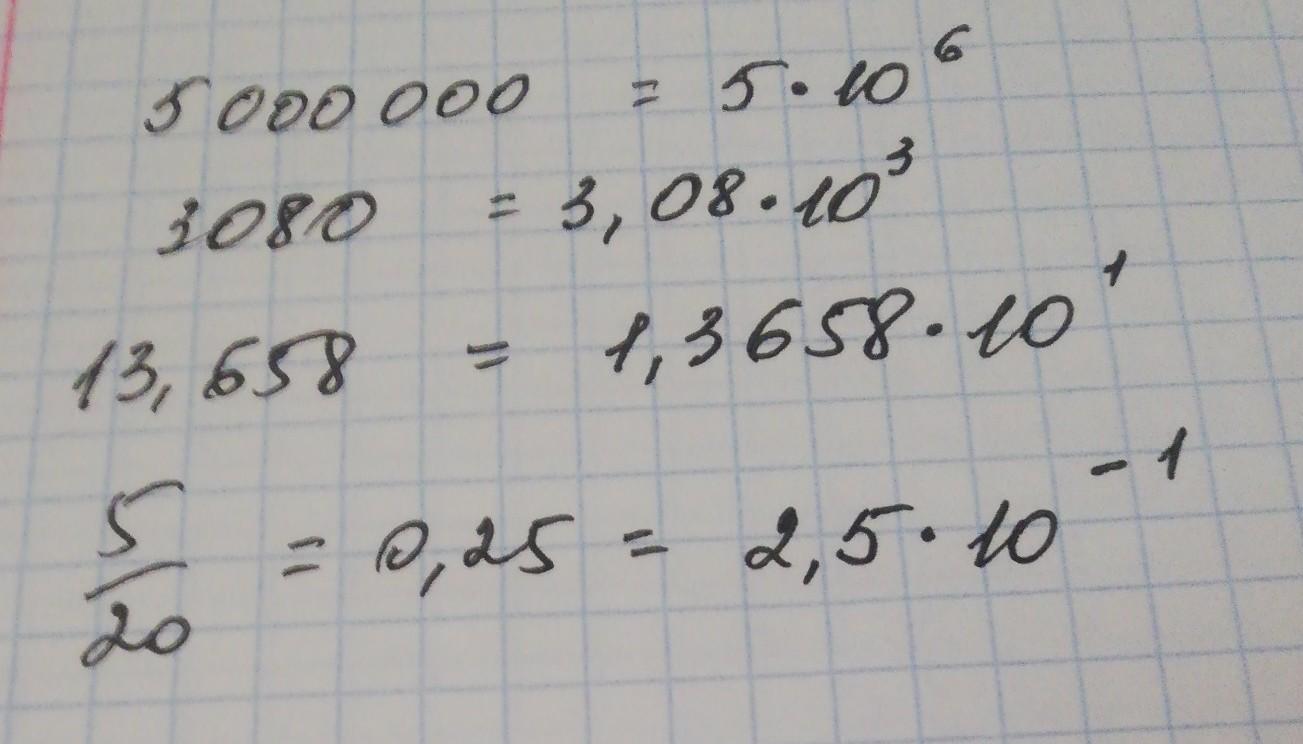 5 000 000 = 5 · 10⁶
3080 = 3,08 · 10³
13,658 = 1,3658 · 10¹
5/20 = 0,25 = 2,5 · 10⁻¹